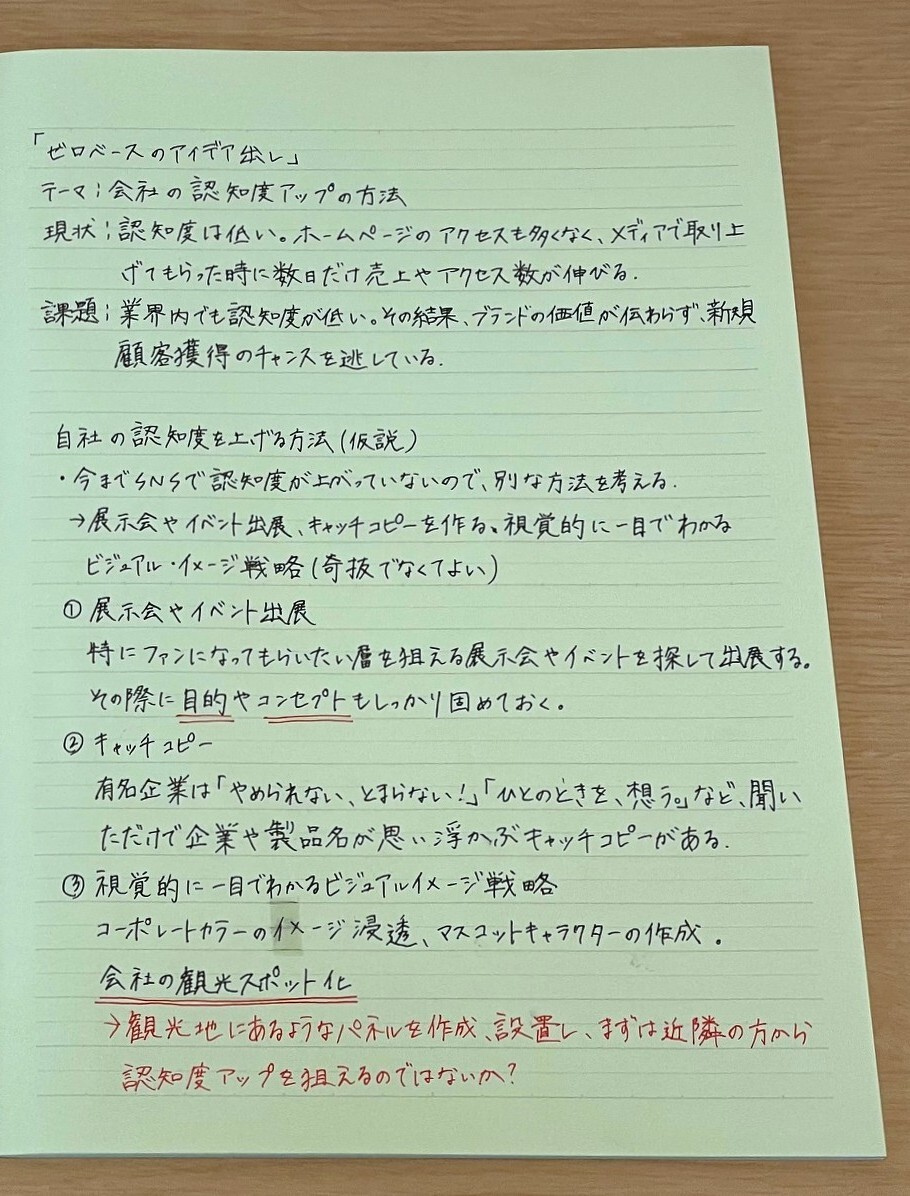 「ゼロベースのアイデア出し」
テーマ:会社の認知度アップの方法
現状:認知度は低い。ホームページのアクセスも多くなく、メディアで取り上
げてもらった時に数日だけ売上やアクセス数が伸びる.
課題:業界内でも認知度が低い。その結果、ブランドの価値が伝わらず、新規
顧客獲得のチャンスを逃している.
自社の認知度を上げる方法(仮説)
・今までSNSで認知度が上がっていないので、別な方法を考える.
→展示会やイベント出展、キャッチコピーを作る。視覚的に一目でわかる
ビジュアル・イメージ戦略(奇抜でなくてよい)
① 展示会やイベント出展
特にファンになってもらいたい層を狙える展示会やイベントを探して出展する。
その際に目的やコンセプトもしっかり固めておく。
② キャッチコピー
有名企業は「やめられない、とまらない!」「ひとのときを、想う。」など、聞い
ただけで企業や製品名が思い浮かぶキャッチコピーがある.
③ 視覚的に一目でわかるビジュアルイメージ戦略
コーポレートカラーのイメージ浸透、マスコットキャラクターの作成.
会社の観光スポット化
→観光地にあるようなパネルを作成、設置し、まずは近隣の方から
認知度アップを狙えるのではないか?